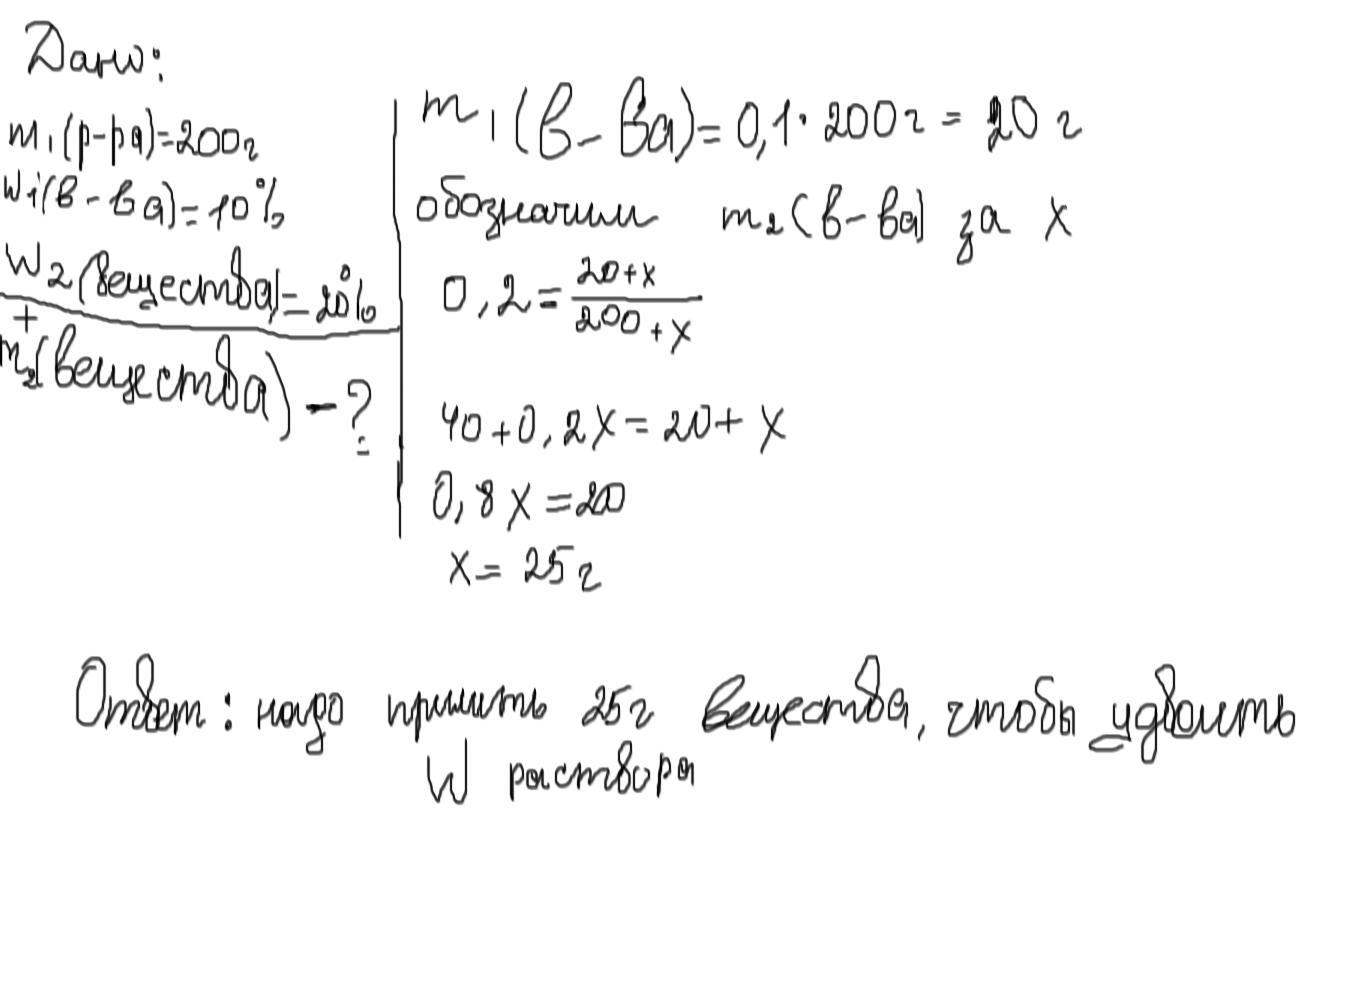 Дано:
m₁(р-ра)=200г
W₁(в-ва)=10%
W₂(вещества)=20%
+
m₂(вещества) - ?
m₁(в-ва)=0,1·200г = 20 г
обозначим m₂(в-ва) за x
0,2 = (20+x)/(200+x)
40+0,2x=20+x
0,8x=20
x= 25г
Ответ: надо прилить 25г вещества, чтобы удвоить
W раствора